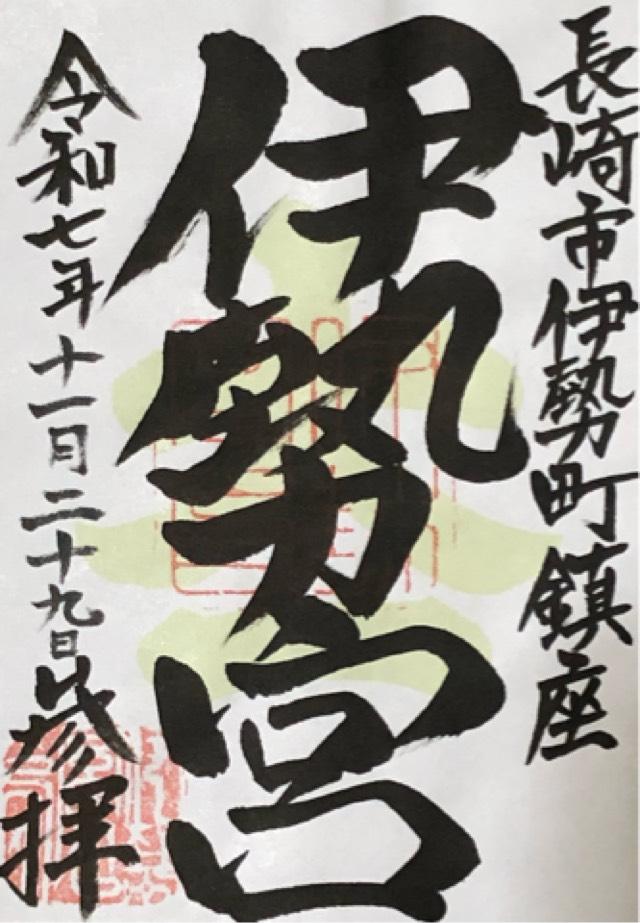 長崎市伊勢町鎮座
伊勢宮
令和七年十一月二十九日参拝